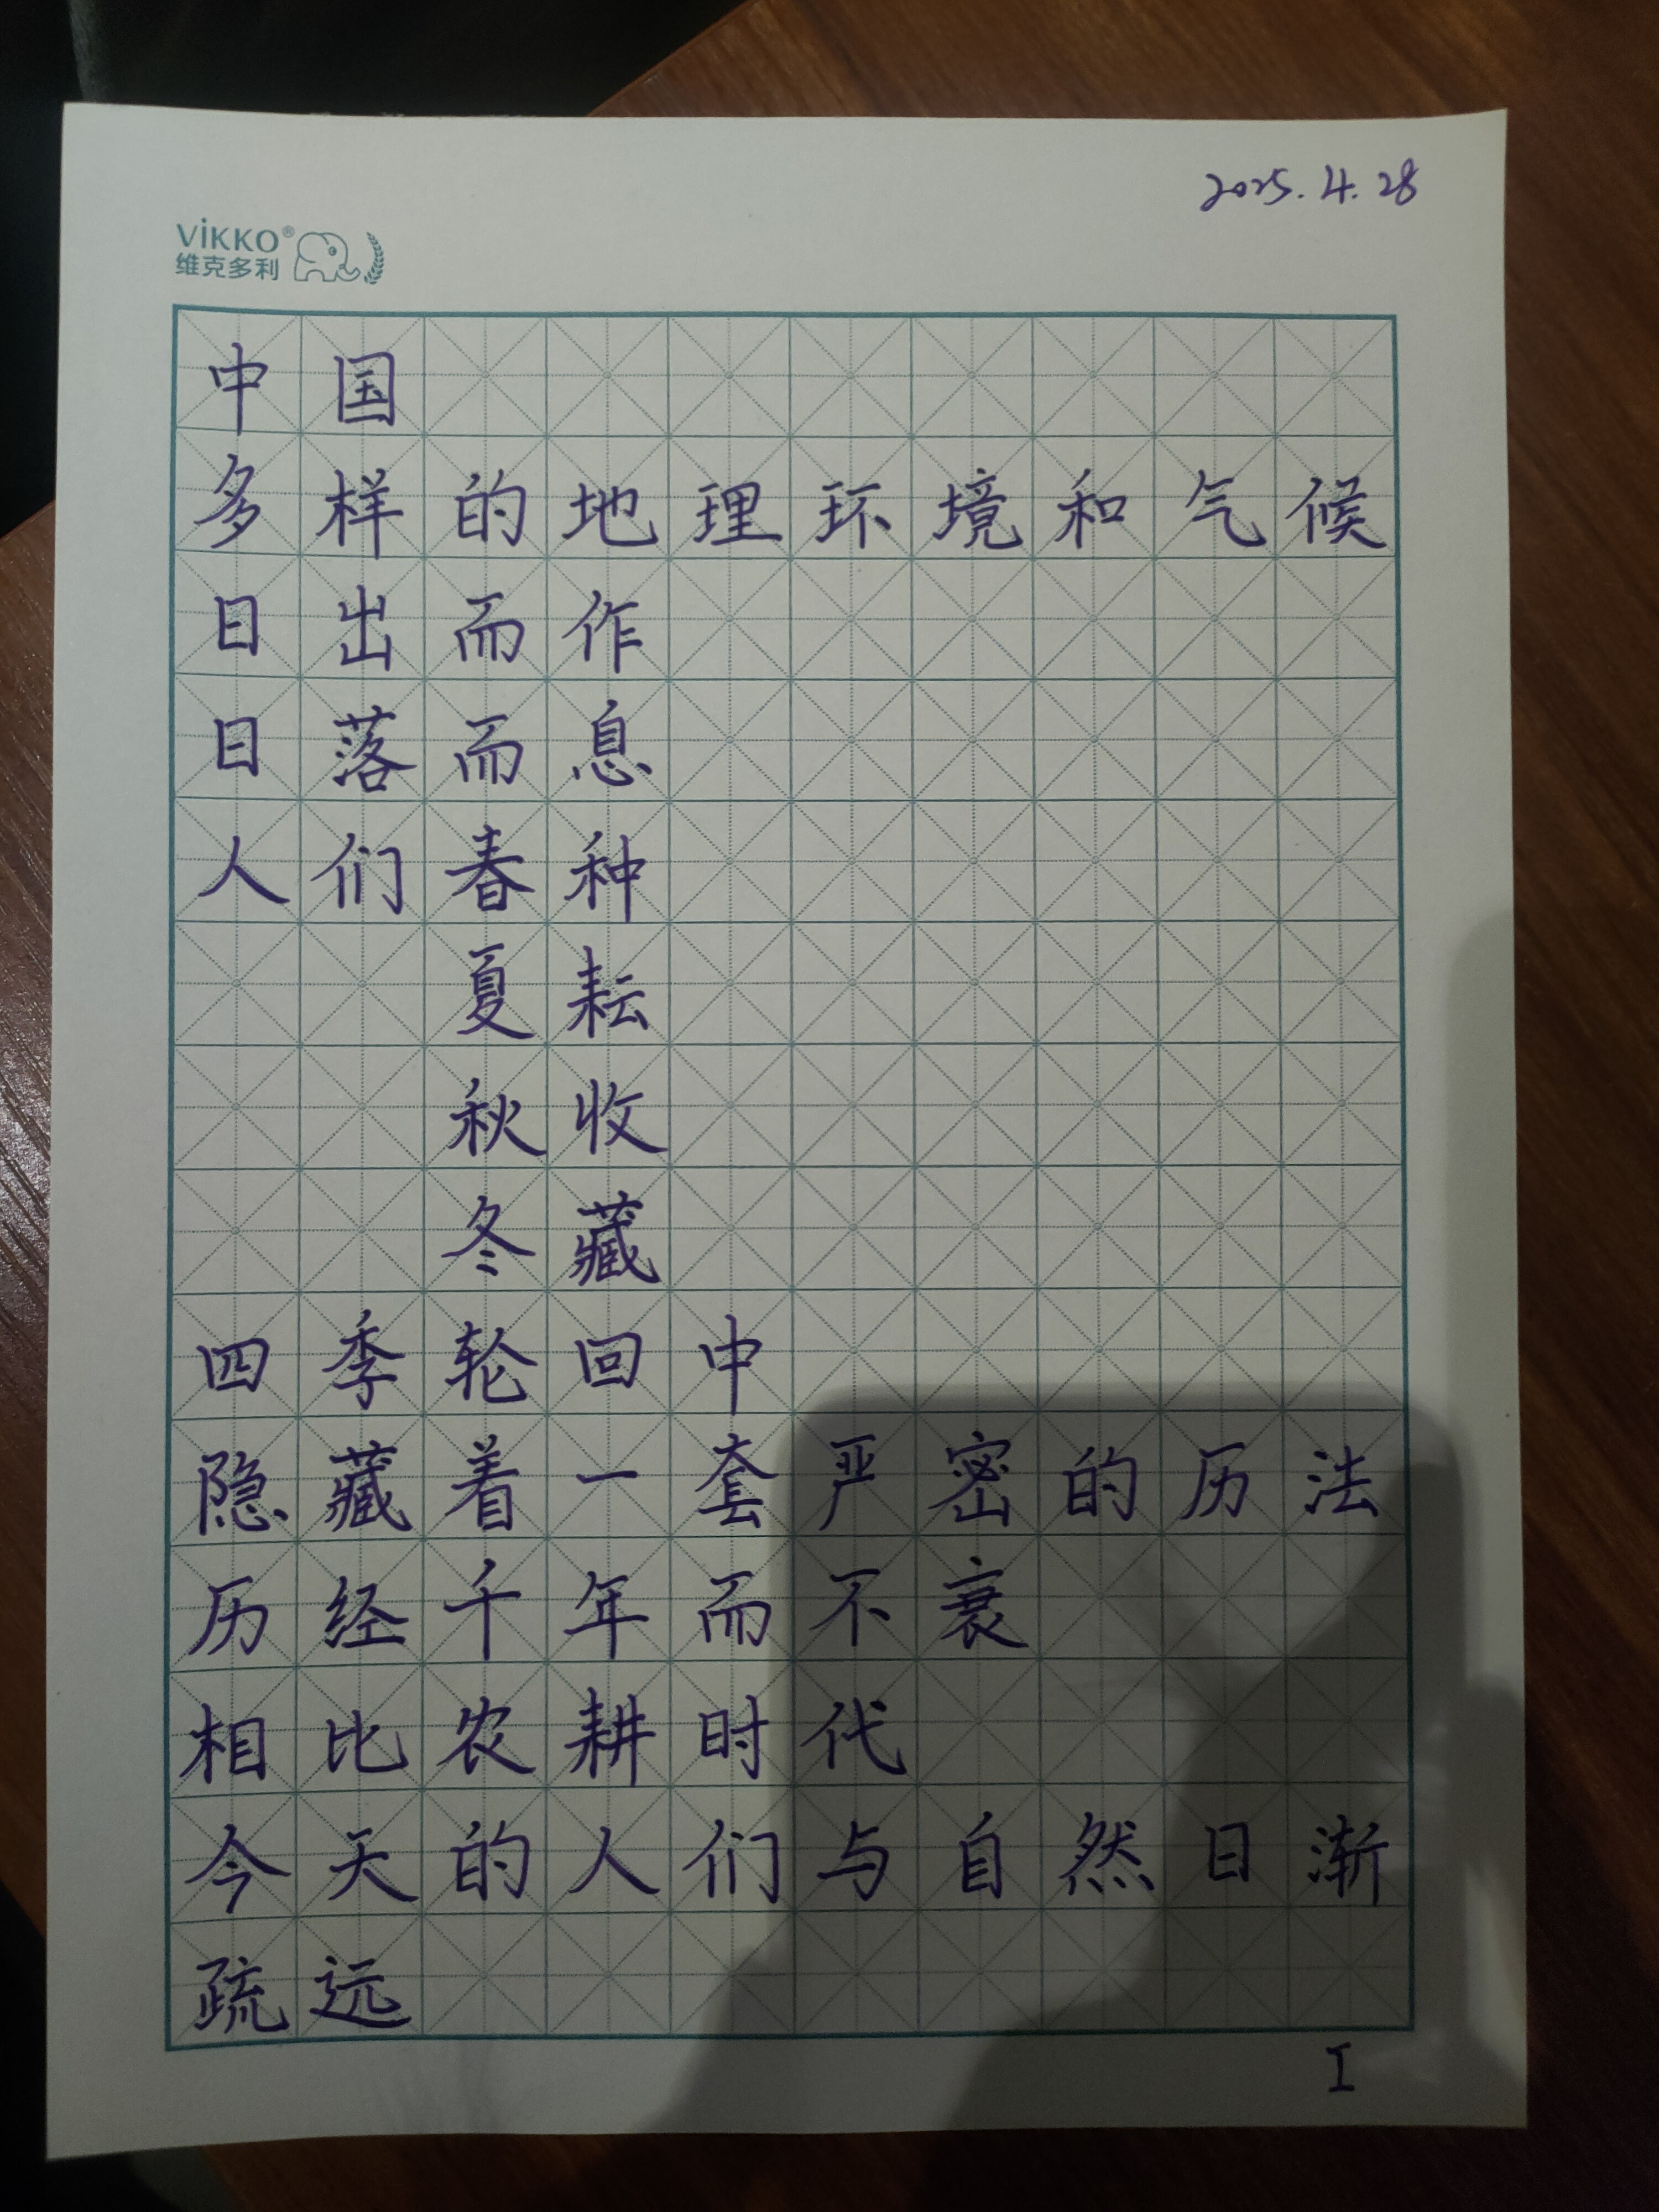 2025.4.28
ViKKO®
维克多利
中国
多样的地理环境和气候
日出而作
日落而息
人们春种
夏耘
秋收
冬藏
四季轮回中
隐藏着一套严密的历法
历经千年而不衰
相比农耕时代
今天的人们与自然日渐
疏远
I